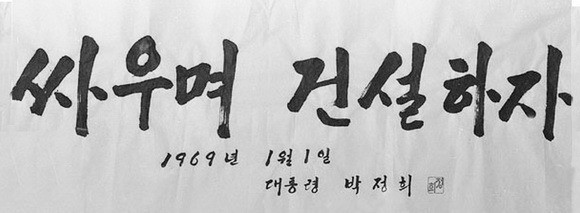 싸우며 건설하자
1969년 1월 1일
대통령 박정희